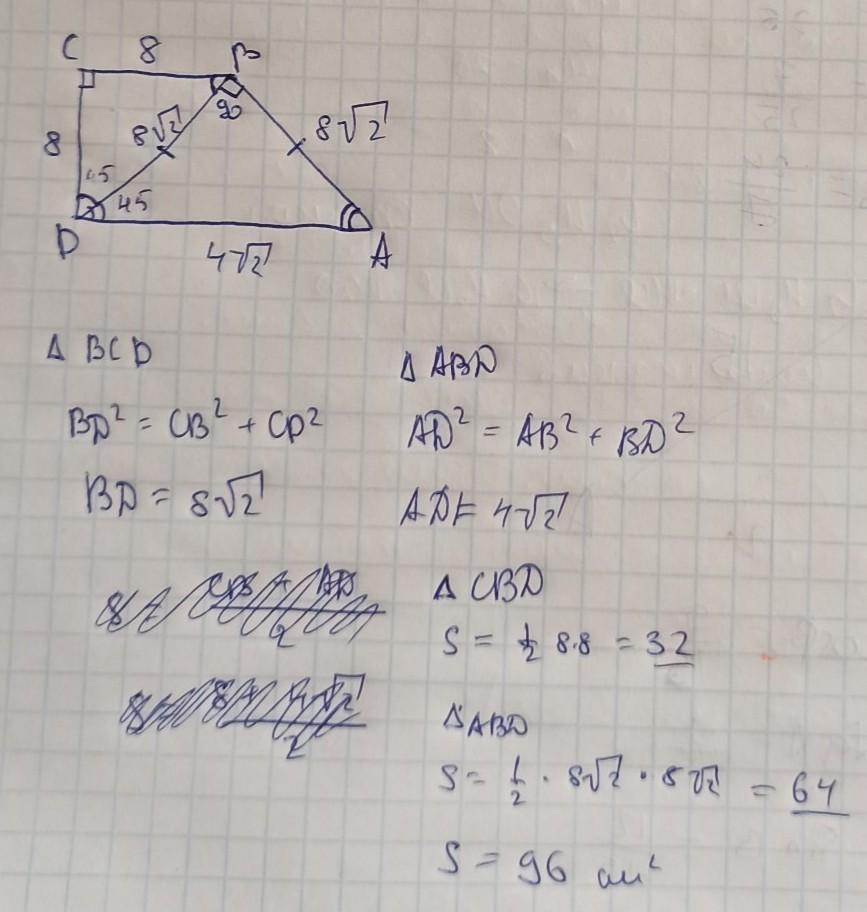 C 8 B
8√2 90 8√2
8
45
45
D 4√2 A
Δ BCD
BD² = CB² + CD²
BD = 8√2
Δ ABD
AD² = AB² + BD²
AD = 4√2
Δ CBD
S = 1/2 8·8 = 32
Δ ABD
S = 1/2 · 8√2 · 8√2 = 64
S = 96 см²